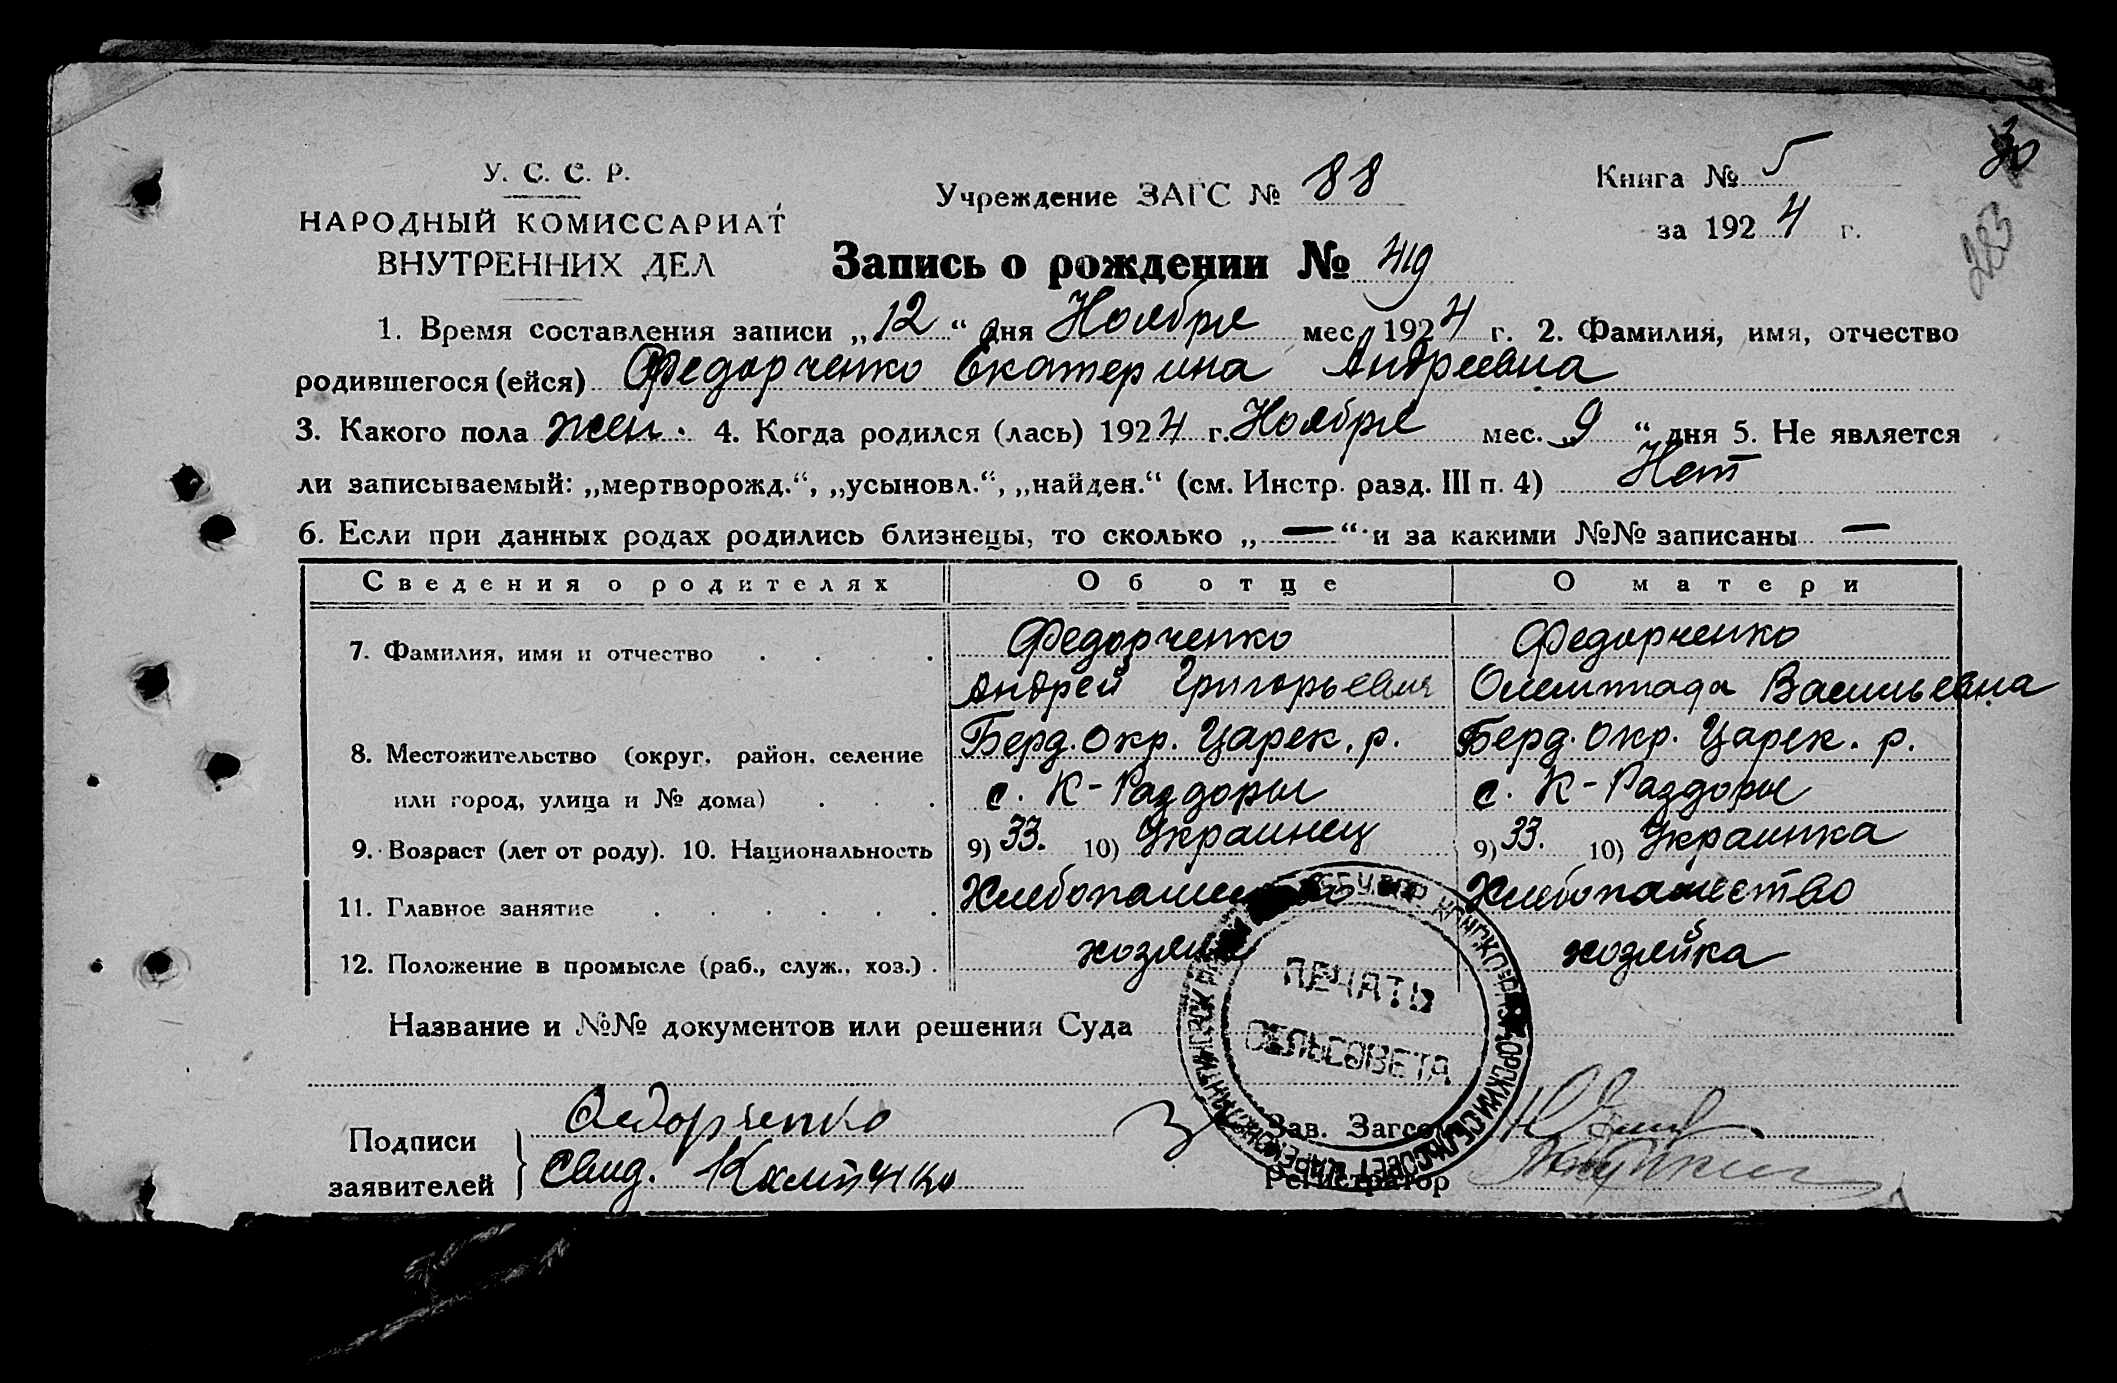 У. С. С. Р.
НАРОДНЫЙ КОМИССАРИАТ
ВНУТРЕННИХ ДЕЛ
Учреждение ЗАГС № 88
Книга № 5
за 1924 г.
30
283
Запись о рождении № 419
1. Время составления записи „12“ дня Ноября мес. 1924 г. 2. Фамилия, имя, отчество
родившегося (ейся) Федорченко Екатерина Андреевна
3. Какого пола жен. 4. Когда родился (лась) 1924 г. Ноября мес. „9“ дня 5. Не является
ли записываемый: „мертворожд.“, „усыновл.“, „найден.“ (см. Инстр. разд. III п. 4) Нет
6. Если при данных родах родились близнецы, то сколько „—“ и за какими №№ записаны —
Сведения о родителях Об отце О матери
7. Фамилия, имя и отчество . . . . Федорченко Федорченко
Андрей Григорьевич Олемпиада Васильевна
8. Местожительство (округ, район, селение Берд. Окр. Царек. р. Берд. Окр. Царек. р.
или город, улица и № дома) . . . с. К-Раздоры с. К-Раздоры
9. Возраст (лет от роду). 10. Национальность 9) 33. 10) Украинец 9) 33. 10) Украинка
11. Главное занятие . . . . . . Хлебопашество Хлебопашество
12. Положение в промысле (раб., служ., хоз.) . хозяин хозяйка
Название и №№ документов или решения Суда
ПЕЧАТЬ
СЕЛЬСОВЕТА
Подписи
заявителей
Федорченко
Свид.
Зав. Загсом
Регистратор